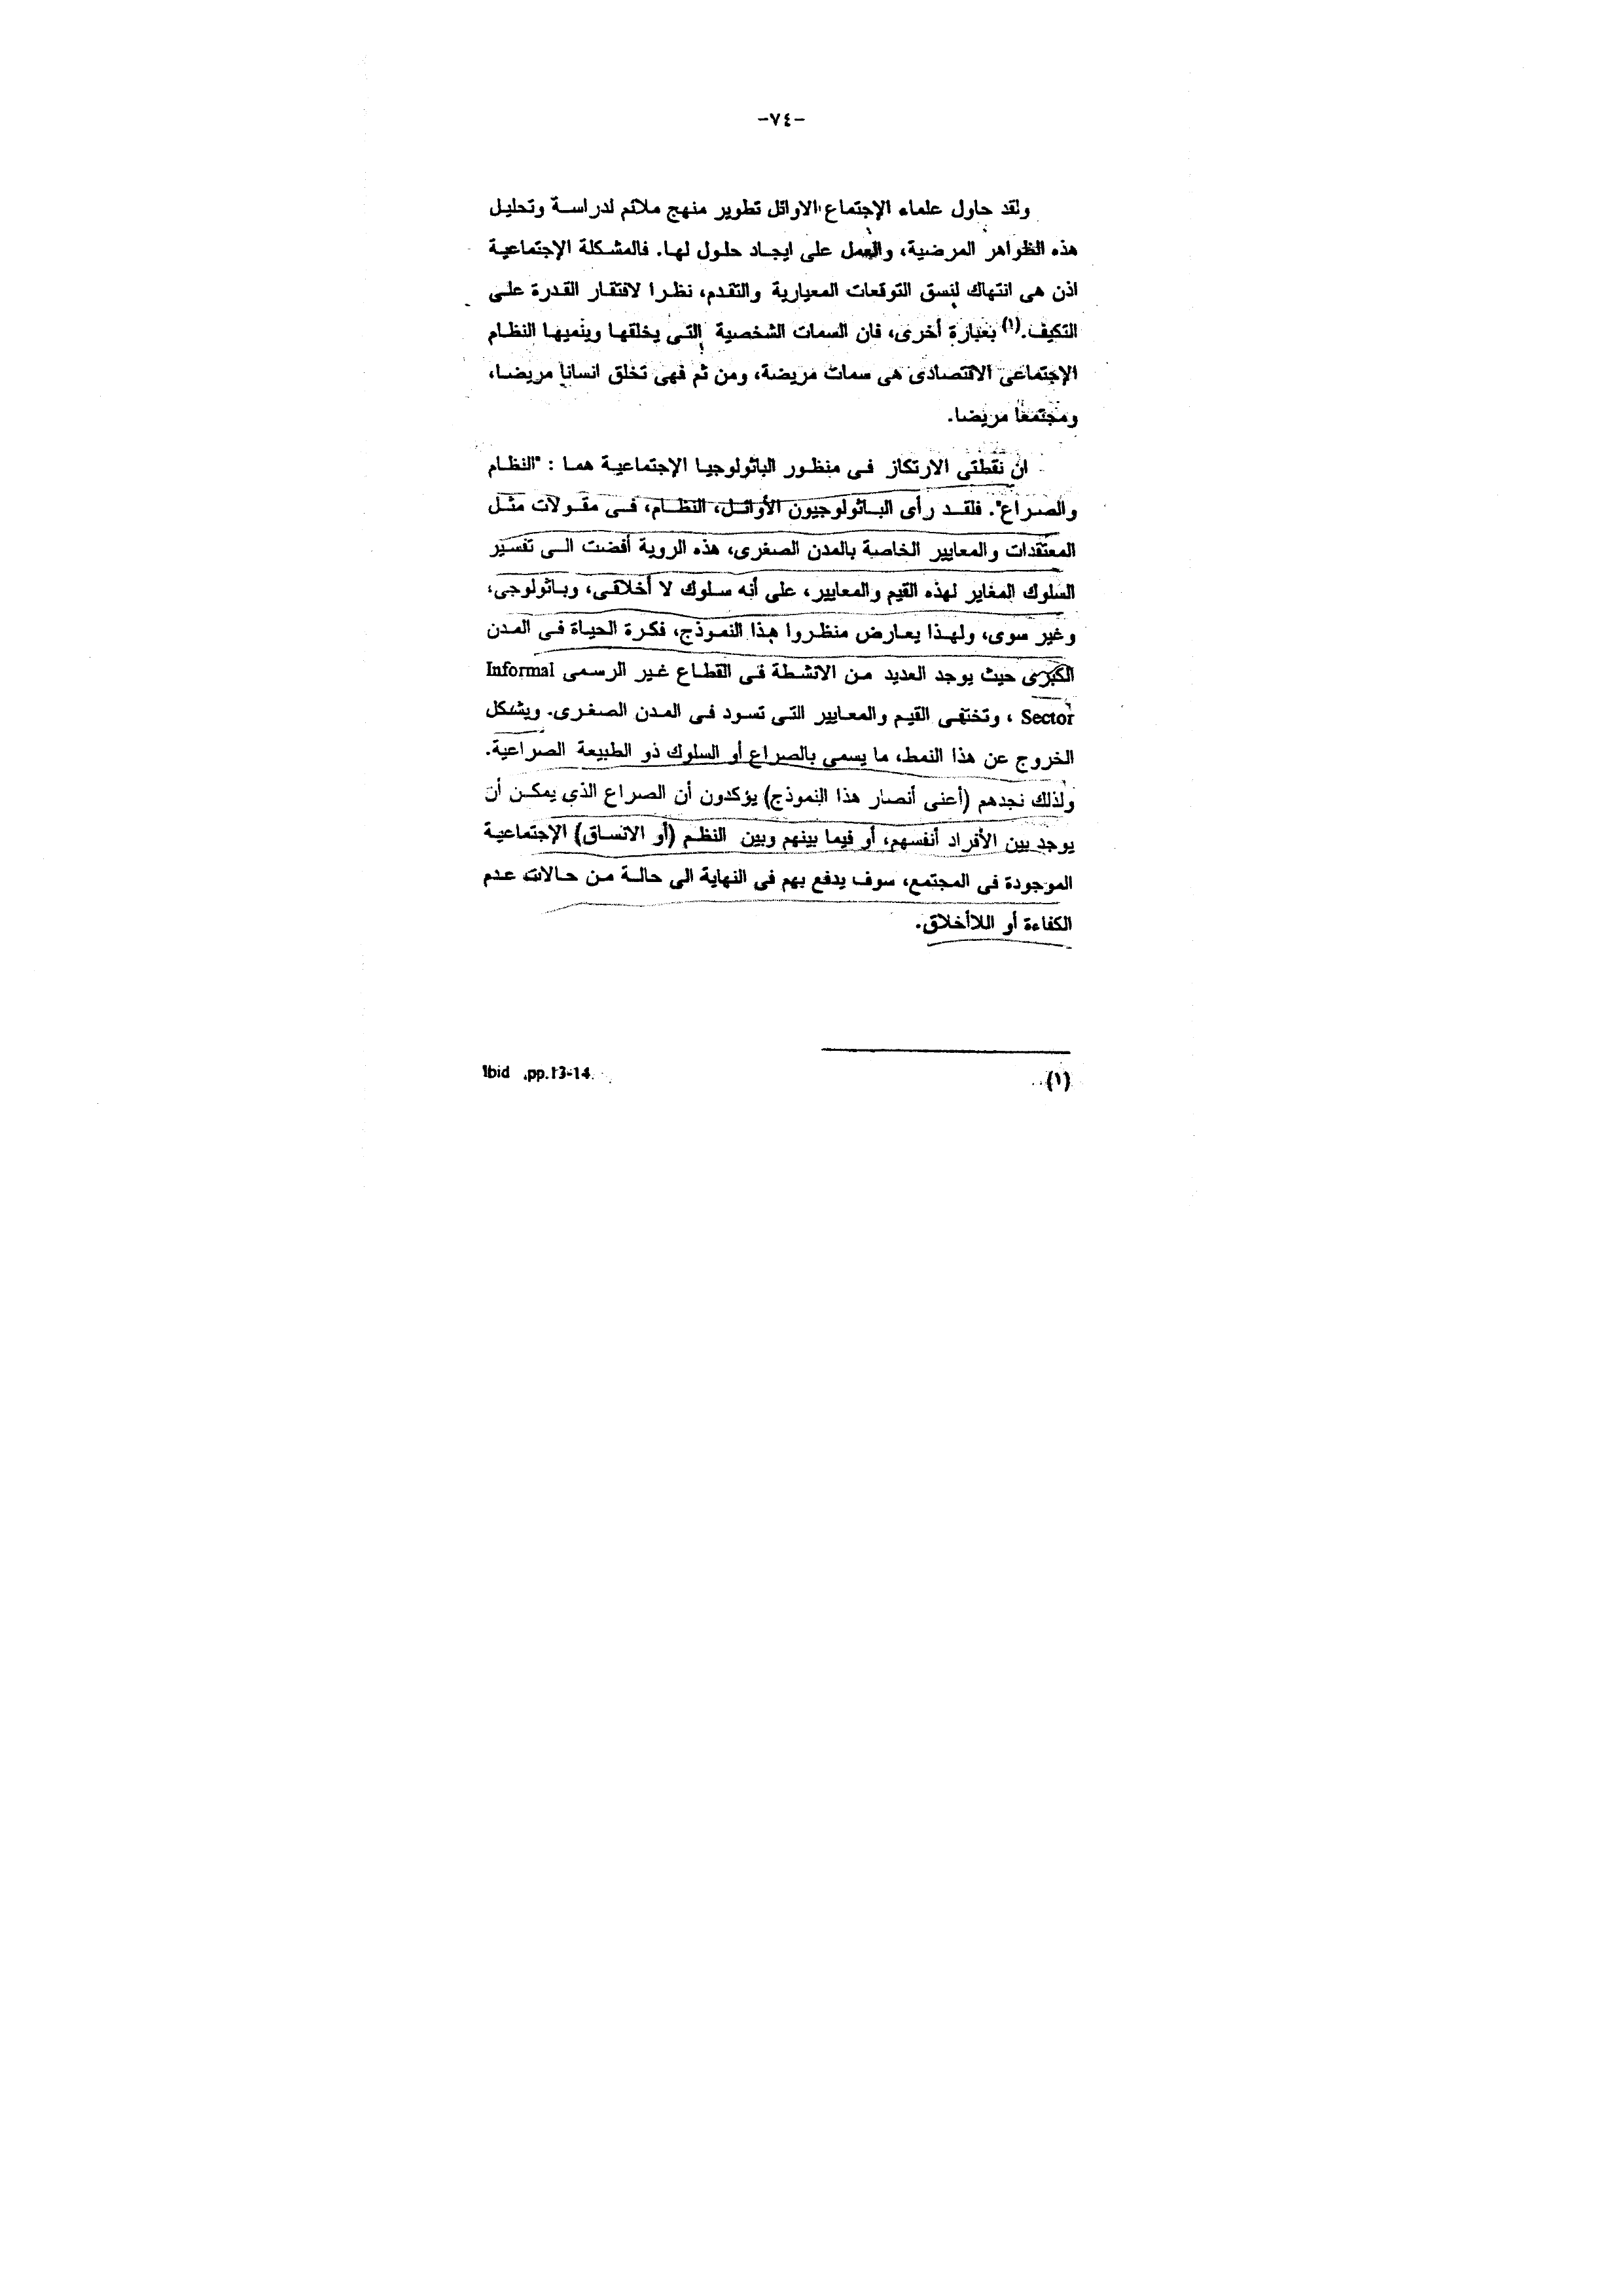 -٧٤-
ولقد حاول علماء الإجتماع الاوائل تطوير منهج ملائم لدراسة وتحليل
هذه الظواهر المرضية، والعمل على ايجاد حلول لها. فالمشكلة الإجتماعية
اذن هى انتهاك لنسق التوقعات المعيارية والتقدم، نظرا لافتقار القدرة على
التكيف.(١) بعبارة أخرى، فان السمات الشخصية التى يخلقها وينميها النظام
الإجتماعى الاقتصادى هى سمات مريضة، ومن ثم فهى تخلق انسانا مريضا،
ومجتمعا مريضا.
ان نقطتى الارتكاز فى منظور الباثولوجيا الإجتماعية هما : "النظام
والصراع". فلقد رأى الباثولوجيون الأوائل، النظام، فى مقولات مثل
المعتقدات والمعايير الخاصة بالمدن الصغرى، هذه الروية أفضت الى تفسير
السلوك المغاير لهذه القيم والمعايير، على أنه سلوك لا أخلاقى، وباثولوجى،
وغير سوى، ولهذا يعارض منظروا هذا النموذج، فكرة الحياة فى المدن
الكبرى حيث يوجد العديد من الانشطة فى القطاع غير الرسمى Informal
Sector ، وتختفى القيم والمعايير التى تسود فى المدن الصغرى. ويشكل
الخروج عن هذا النمط، ما يسمى بالصراع أو السلوك ذو الطبيعة الصراعية.
ولذلك نجدهم (أعنى أنصار هذا النموذج) يؤكدون أن الصراع الذى يمكن أن
يوجد بين الأفراد أنفسهم، أو فيما بينهم وبين النظم (أو الانساق) الإجتماعية
الموجودة فى المجتمع، سوف يدفع بهم فى النهاية الى حالة من حالات عدم
الكفاءة أو اللاأخلاق.
(١) Ibid ,pp.13-14.